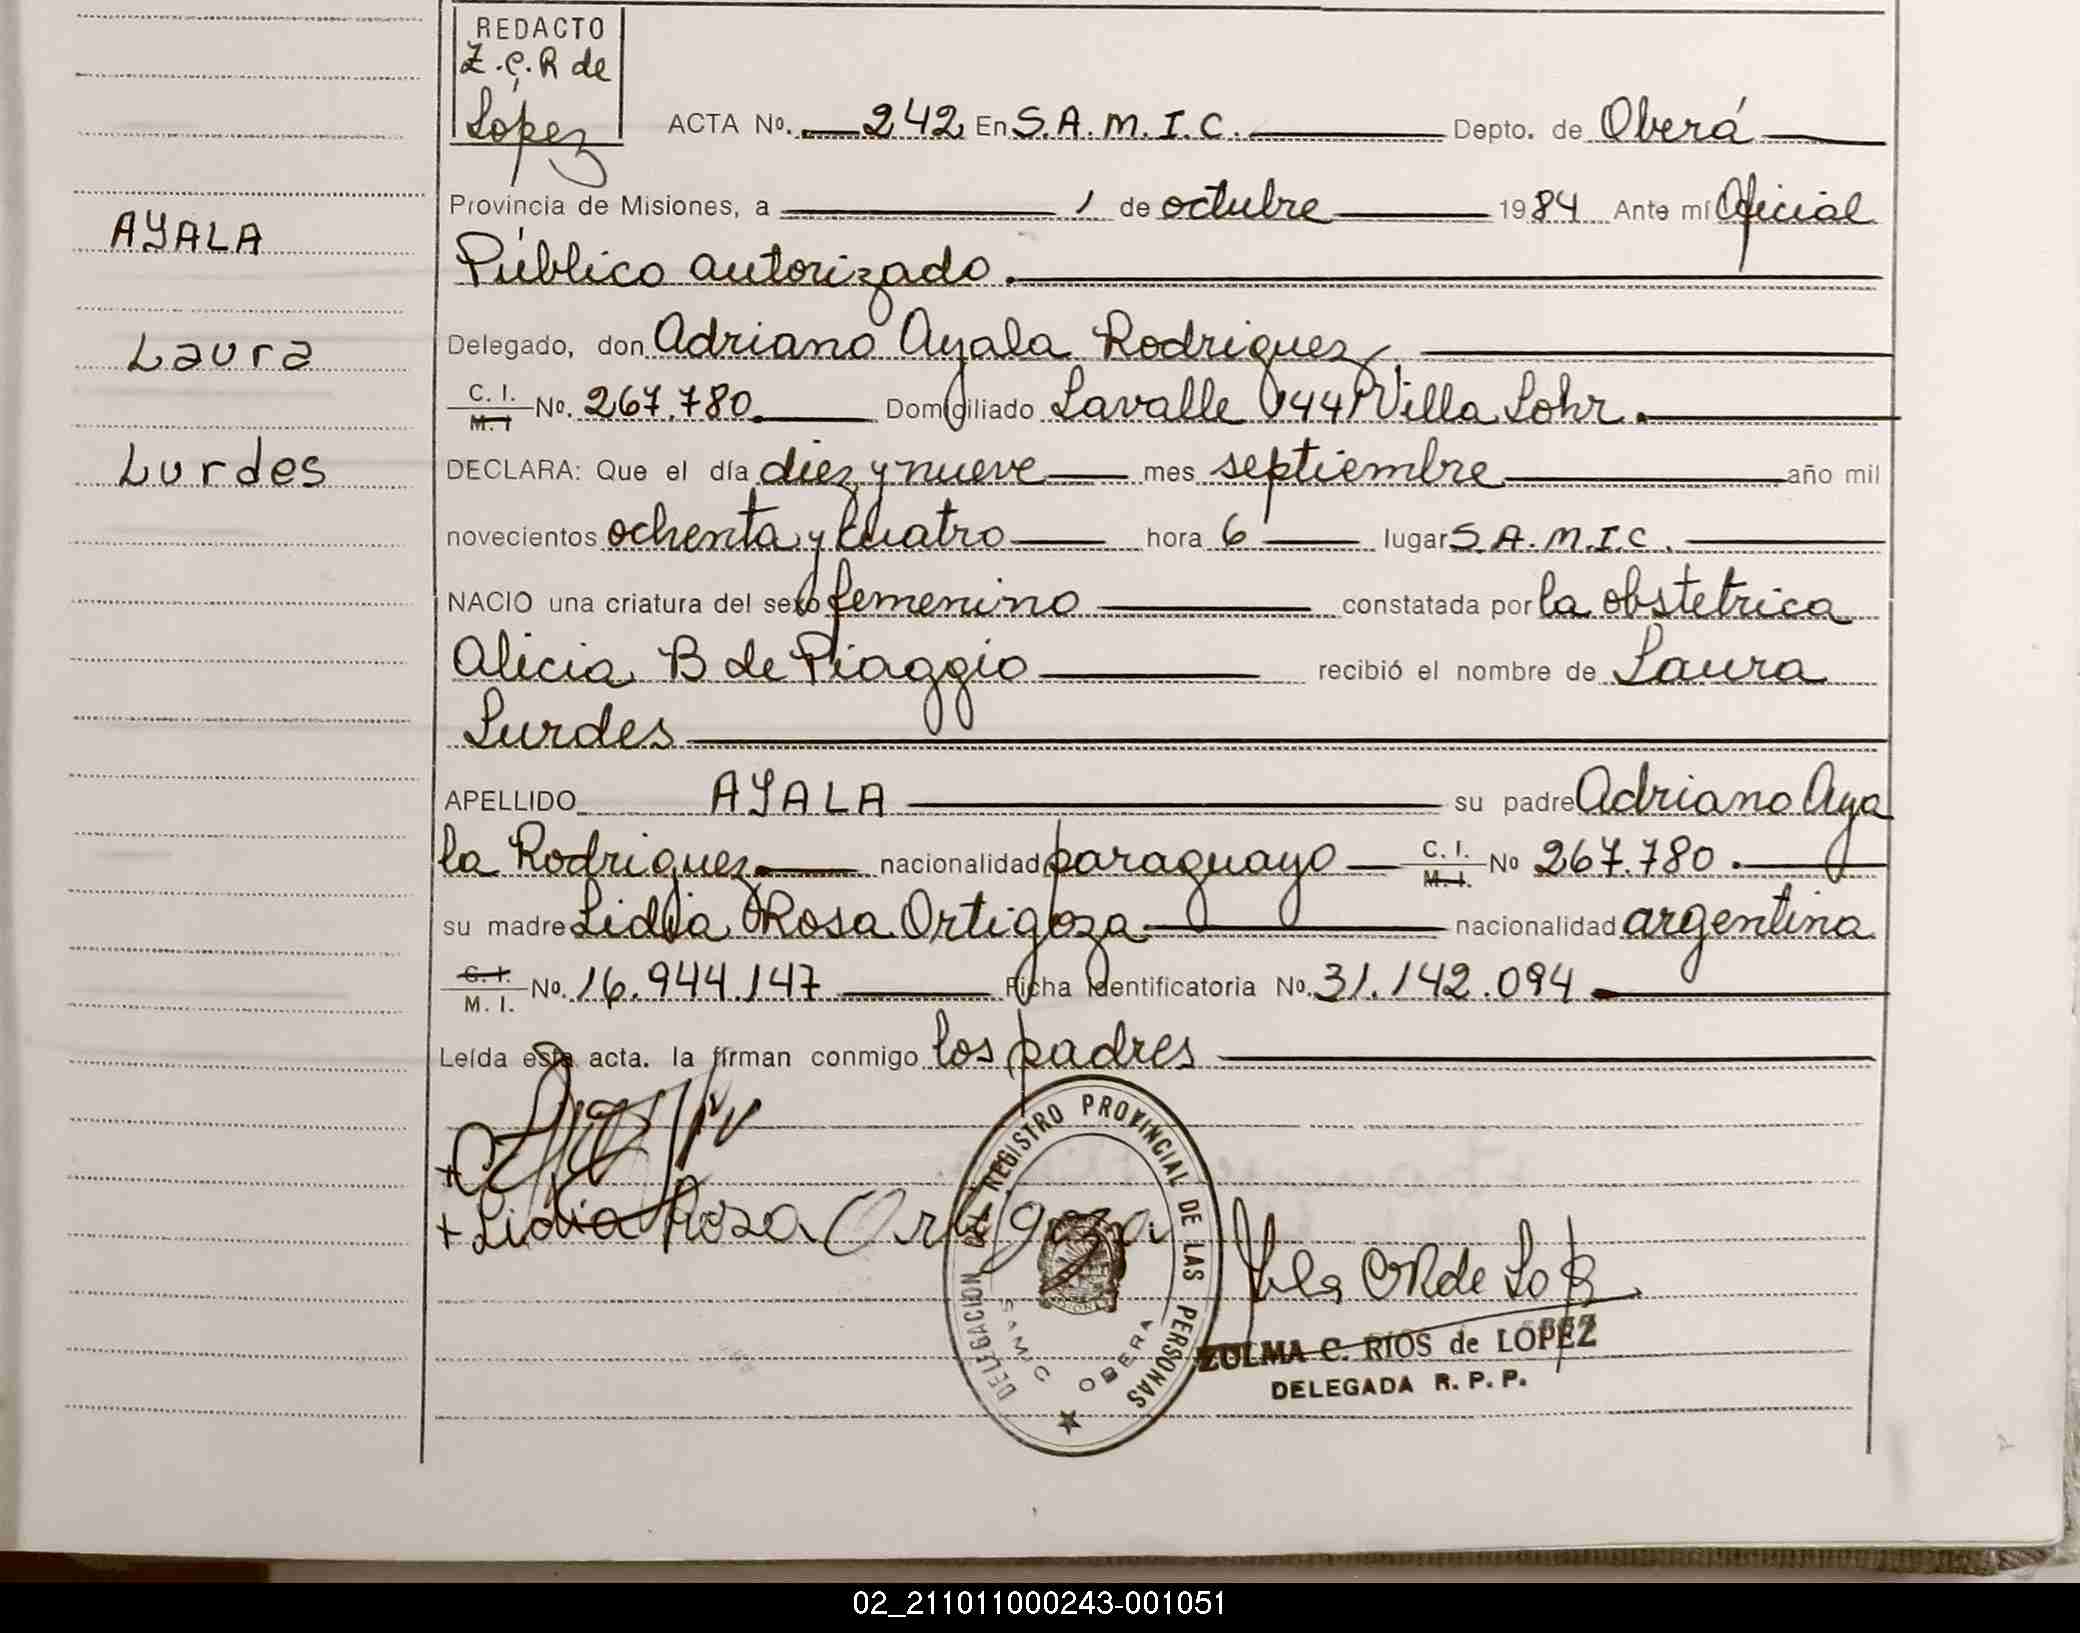 REDACTO
Z.C.R de
López
ACTA No. 242 En S.A.M.I.C. Depto. de Oberá
Provincia de Misiones, a 1 de octubre 1984 Ante mí Oficial
Público autorizado.
Delegado, don Adriano Ayala Rodriguez
C. I. M. I No. 267.780 Domiciliado Lavalle 144 Villa Lohr.
DECLARA: Que el día diez y nueve mes septiembre año mil
novecientos ochenta y cuatro hora 6 lugar S.A.M.I.C.
NACIO una criatura del sexo femenino constatada por la obstetrica
Alicia B de Piaggio recibió el nombre de Laura
Lurdes
APELLIDO AYALA su padre Adriano Aya
la Rodriguez nacionalidad paraguayo C. I. M. I. No 267.780.
su madre Lidia Rosa Ortigoza nacionalidad argentina
C. I. M. I. No. 16.944.147 Ficha Identificatoria No. 31.142.094
Leída esta acta. la firman conmigo los padres
+
+ Lidia Rosa Ortigoza
DELEGACION DEL REGISTRO PROVINCIAL DE LAS PERSONAS
SAMIC OBERA
ZULMA C. RIOS de LOPEZ
DELEGADA R. P. P.
AYALA
Laura
Lurdes
02_211011000243-001051